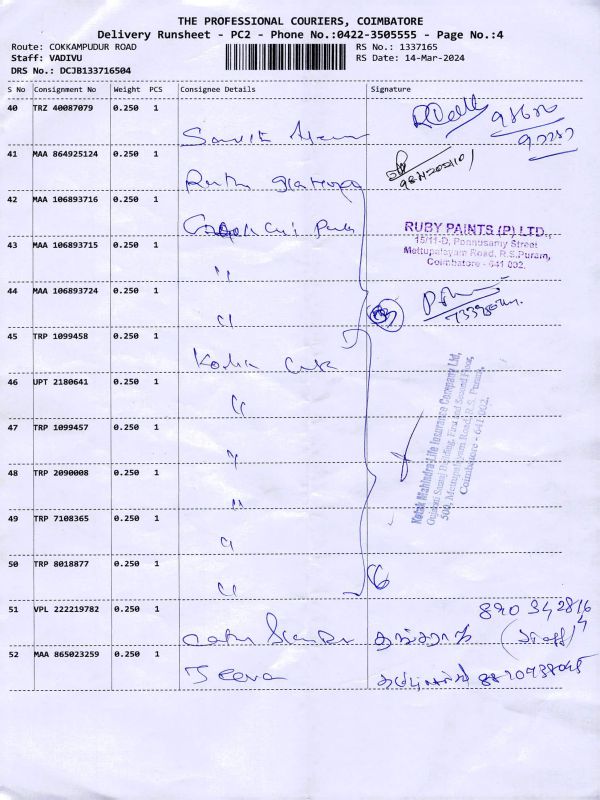 THE PROFESSIONAL COURIERS, COIMBATORE
Delivery Runsheet - PC2 - Phone No.:0422-3505555 - Page No.:4
Route: COKKAMPUDUR ROAD
Staff: VADIVU
DRS No.: DCJB133716504
RS No.: 1337165
RS Date: 14-Mar-2024
S No Consignment No Weight PCS Consignee Details Signature
40 TRZ 40087079 0.250 1
41 MAA 864925124 0.250 1
42 MAA 106893716 0.250 1
RUBY PAINTS (P) LTD.,
15/11-D, Ponnusamy Street
Mettupalayam Road, R.S.Puram,
Coimbatore - 641 002.
43 MAA 106893715 0.250 1
〃
44 MAA 106893724 0.250 1
〃
45 TRP 1099458 0.250 1
Kotak
Kotak Mahindra Life Insurance Company Ltd,
Gujarati Samaj Building, First and Second Floor,
508, Mettupalayam Road, R.S. Puram,
Coimbatore - 641 002.
46 UPT 2180641 0.250 1
〃
47 TRP 1099457 0.250 1
〃
48 TRP 2090008 0.250 1
〃
49 TRP 7108365 0.250 1
〃
50 TRP 8018877 0.250 1
〃
6
51 VPL 222219782 0.250 1
52 MAA 865023259 0.250 1
Jeeva